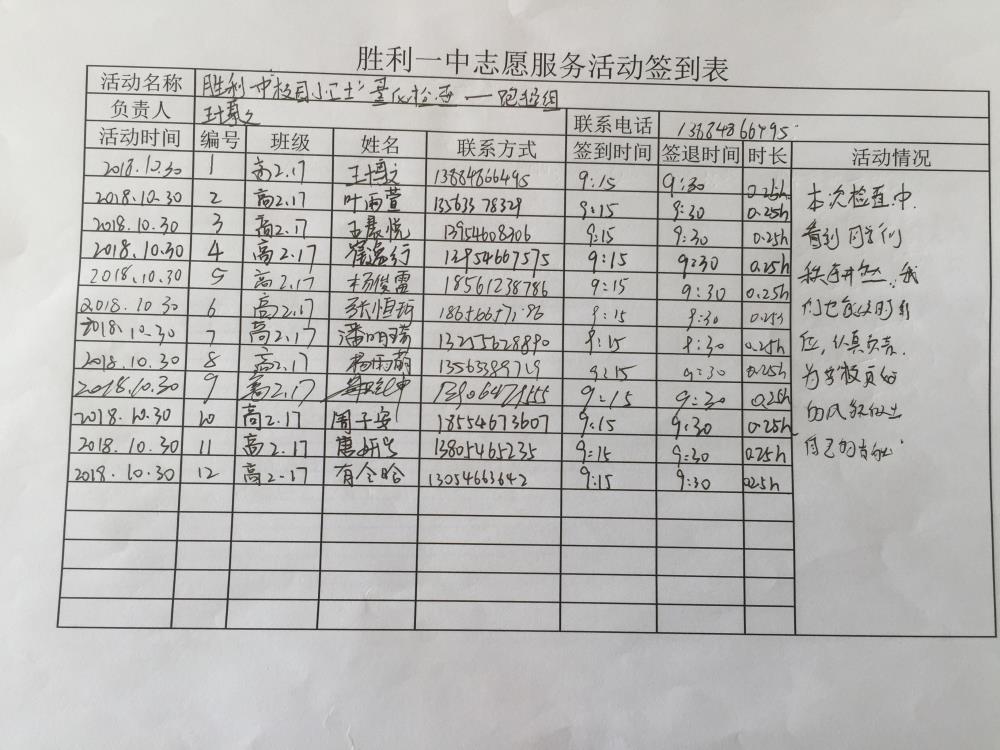 胜利一中志愿服务活动签到表
活动名称 胜利一中校园小卫士 量化检查—跑操组
负责人 联系电话 13884866495
活动时间 编号 班级 姓名 联系方式 签到时间 签退时间 时长 活动情况
2018.10.30 1 高2.17 王博文 13884866495 9:15 9:30 0.25h 本次检查中
2018.10.30 2 高2.17 叶雨萱 13563378329 9:15 9:30 0.25h
2018.10.30 3 高2.17 13954608306 9:15 9:30 0.25h 看到同学们
2018.10.30 4 高2.17 13954667575 9:15 9:30 0.25h
2018.10.30 5 高2.17 杨俊雷 18561238786 9:15 9:30 0.25h 秩序井然,我
2018.10.30 6 高2.17 张恒 9:15 9:30 0.25h 们也能及时到
2018.10.30 7 高2.17 潘明 13255628890 9:15 9:30 0.25h 位,认真负责.
2018.10.30 8 高2.17 杨雨萌 13563389719 9:15 9:30 0.25h
2018.10.30 9 高2.17 9:15 9:30 0.25h 为学校贡献
2018.10.30 10 高2.17 周子安 18554673607 9:15 9:30 0.25h
2018.10.30 11 高2.17 唐妍 13805465235 9:15 9:30 0.25h 自己的
2018.10.30 12 高2.17 13054663642 9:15 9:30 0.25h